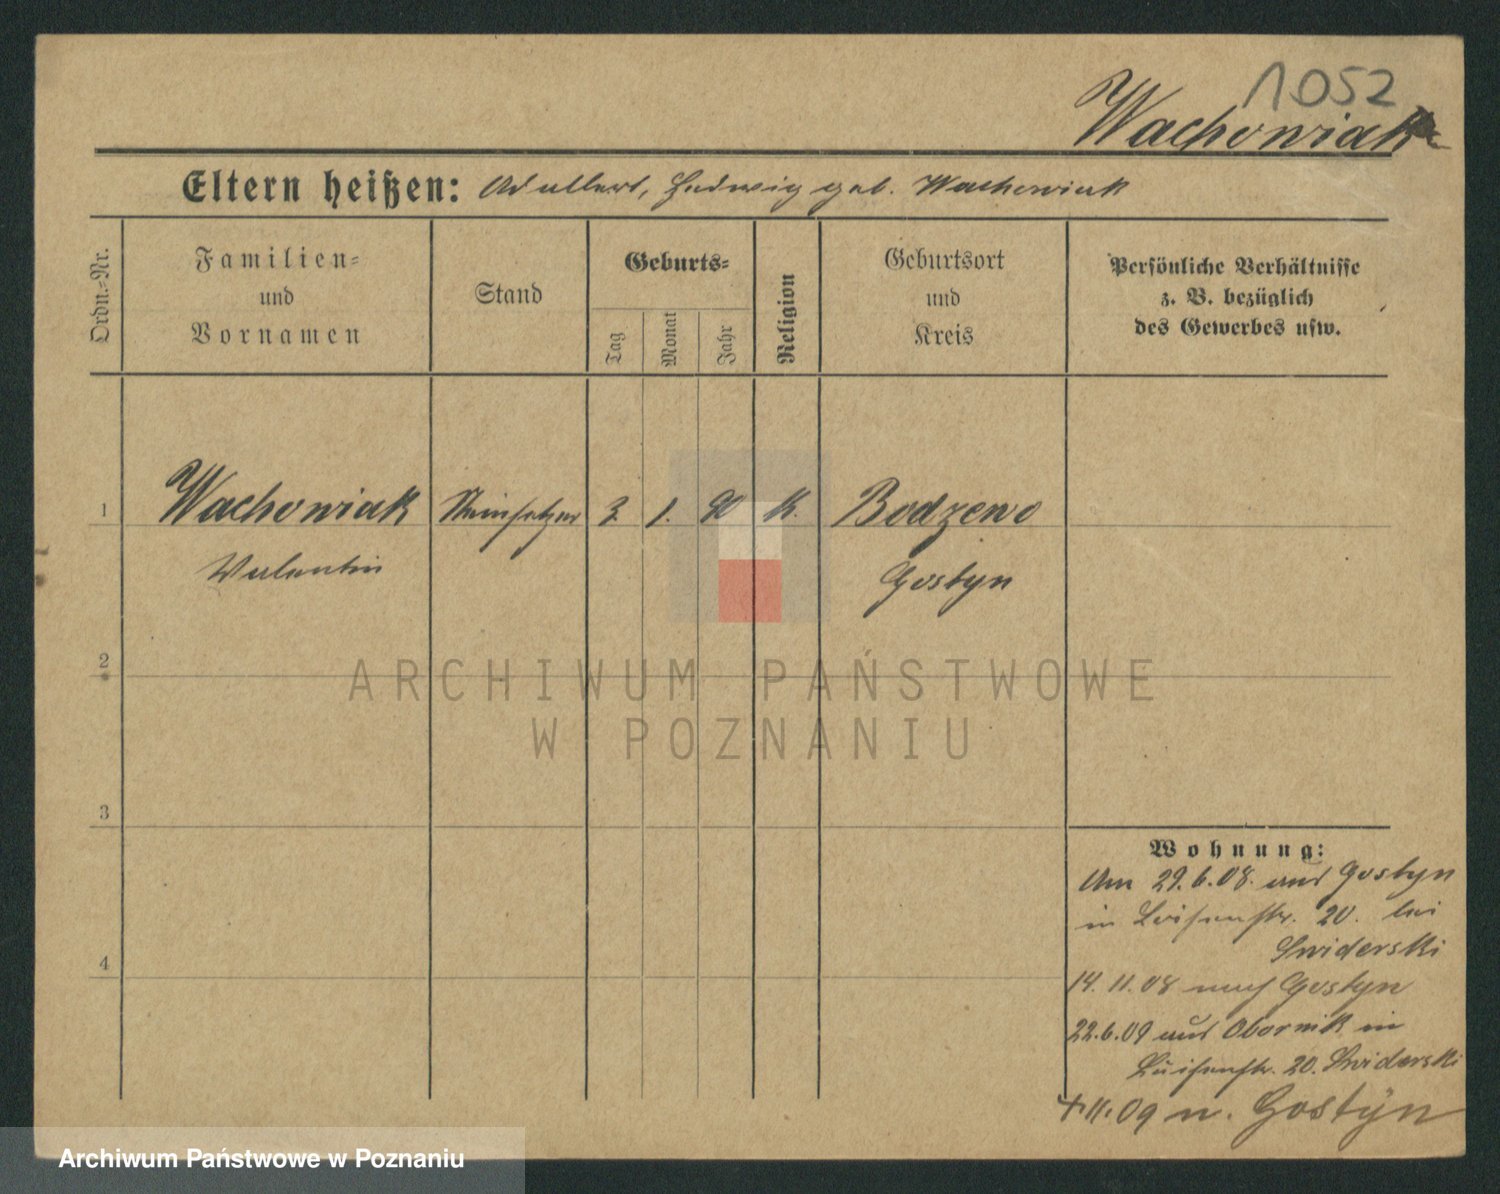 1052
Wachowiak
Eltern heißen: Adalbert, Hedwig geb. Wachowiak
Ordn.-Nr.
Familien-
und
Vornamen
Stand
Geburts-
Tag
Monat
Jahr
Religion
Geburtsort
und
Kreis
Persönliche Verhältnisse
z. B. bezüglich
des Gewerbes usw.
1 Wachowiak Steinsetzer 3. 1. 90 K. Bodzewo
Valentin Gostyn
2
3
4
Wohnung:
Am 29.6.08. aus Gostyn
in Luisenstr. 20. bei
Swiderski
14.11.08 nach Gostyn
22.6.09 aus Obornik in
Luisenstr. 20. Swiderski
11.09 n. Gostyn
ARCHIWUM PAŃSTWOWE
W POZNANIU
Archiwum Państwowe w Poznaniu